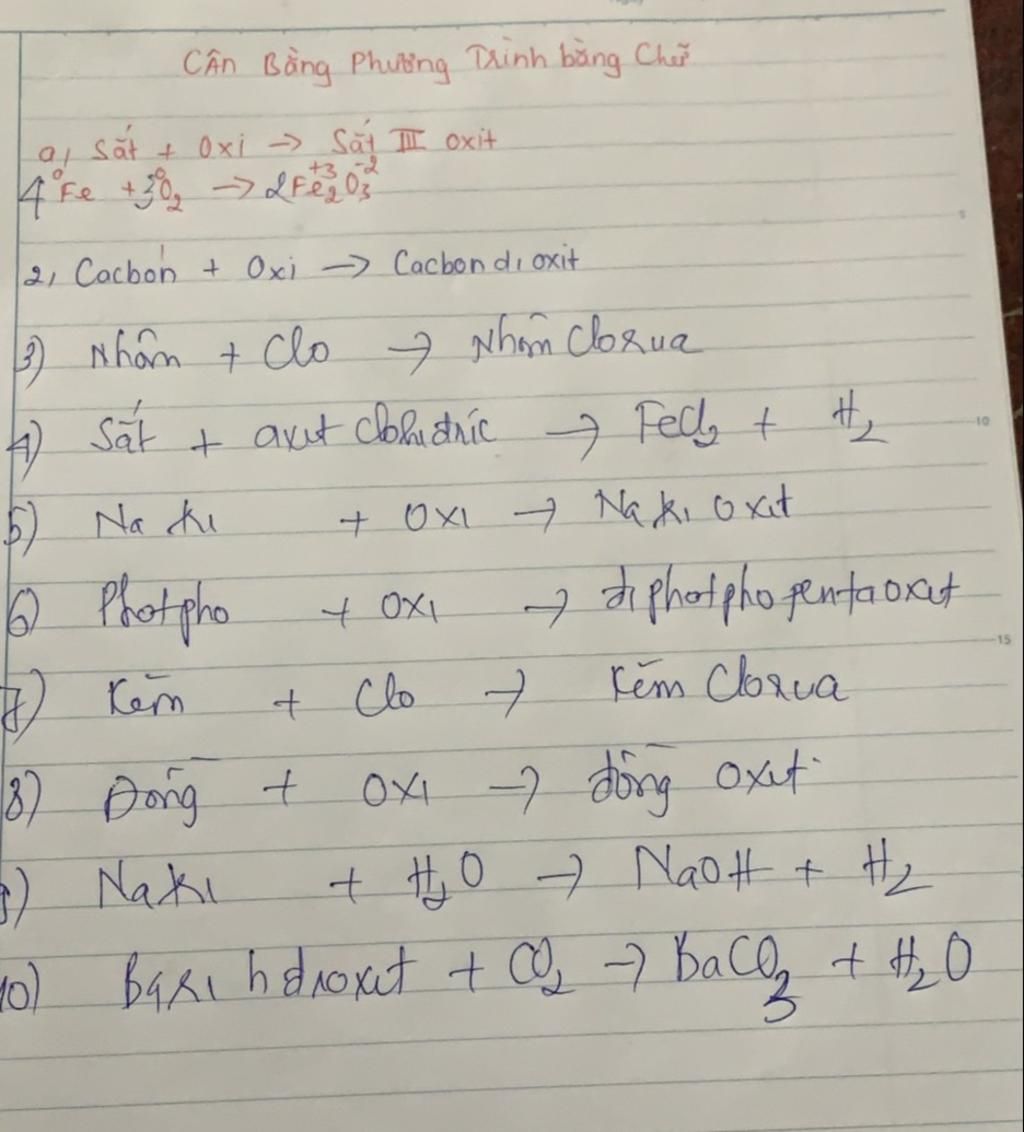 Cân Bằng Phương Trình bằng Chữ
a, Sắt + Oxi → Sắt III oxit
4Fe⁰ + 3O₂⁰ → 2Fe₂⁺³O₃⁻²
2, Cacbon + Oxi → Cacbon di oxit
3) Nhôm + Clo → Nhôm Clorua
4) Sắt + axit Clohidric → FeCl₂ + H₂
5) Na tri + Oxi → Na tri oxit
6) Photpho + oxi → điphotpho pentaoxit
7) Kẽm + Clo → Kẽm Clorua
8) Đồng + Oxi → đồng oxit
9) Natri + H₂O → NaOH + H₂
10) Bari hđroxit + CO₂ → BaCO₃ + H₂O